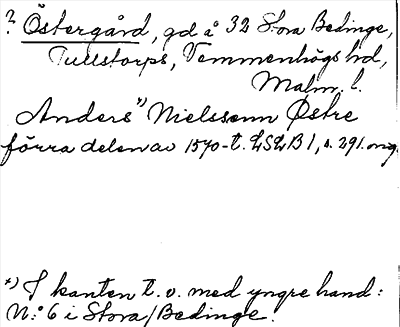 ? Östergård, gd å 32 Stora Bedinge,
Tullstorps, Vemmenhögs hd,
Malm. l.
Anders *) Nielssenn Østre
förra delen av 1570-t. LSLB 1, s. 291. orig.
*) I kanten t. v. med yngre hand:
N:o 6 i Stora/Bedinge.